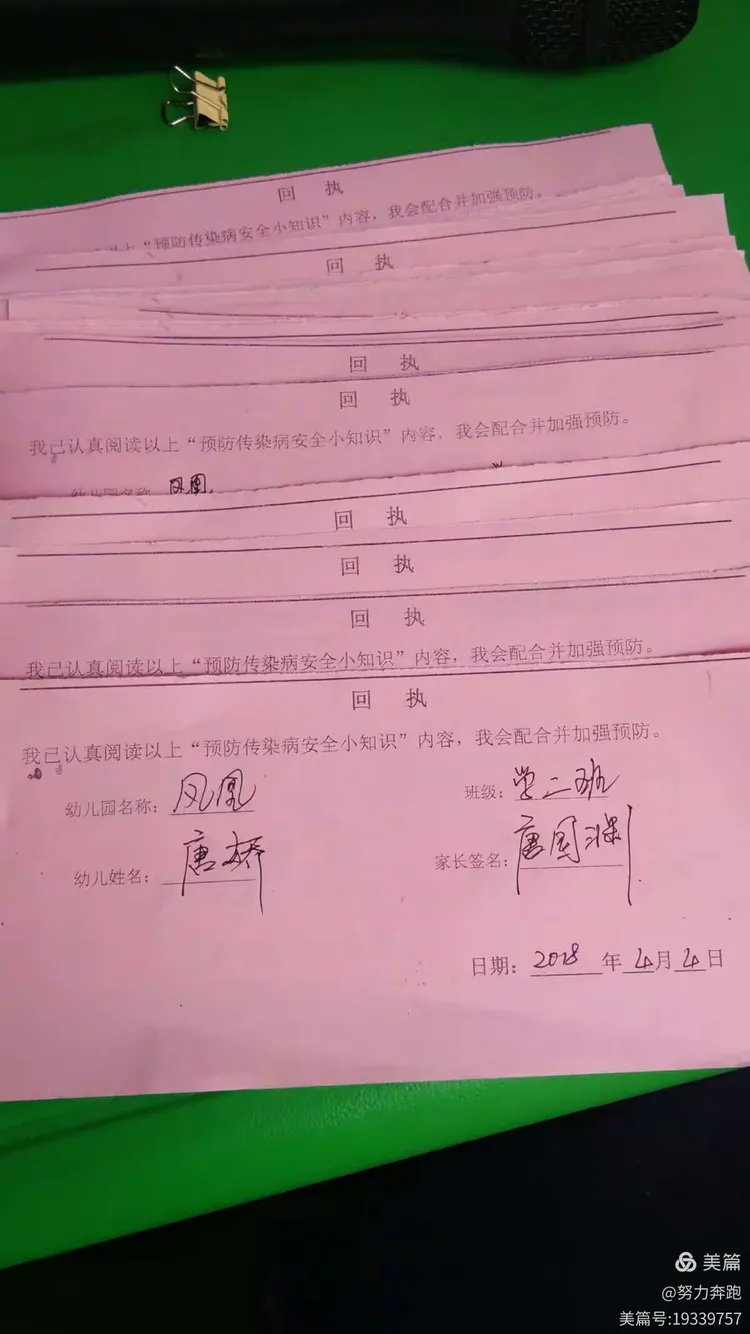 回 执
“预防传染病安全小知识”内容，我会配合并加强预防。
回 执
回 执
回 执
我已认真阅读以上“预防传染病安全小知识”内容，我会配合并加强预防。
幼儿园名称 凤凰
回 执
回 执
回 执
我已认真阅读以上“预防传染病安全小知识”内容，我会配合并加强预防。
回 执
我已认真阅读以上“预防传染病安全小知识”内容，我会配合并加强预防。
幼儿园名称：凤凰 班级：学二班
幼儿姓名：唐桥 家长签名：唐国
日期：2018年4月4日
美篇
@努力奔跑
美篇号:19339757